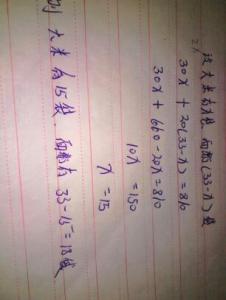 设大米有x袋,面粉有(33-x)袋
30x + 20(33-x)=810
30x + 660-20x=810
10x =150
x =15
则 大米有15袋,面粉有 33-15=18袋